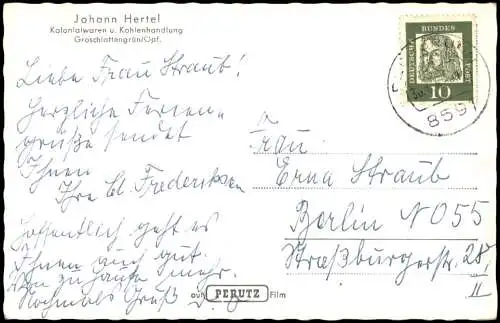 Johann Hertel
Kolonialwaren u. Kohlenhandlung
Groschlattengrün/Opf.
DEUTSCHE BUNDESPOST
10
859
Liebe Frau Straub!
Herzliche Ferien-
grüße sendet
Ihnen
Ihre El. Frederiksen
Hoffentlich geht es
Ihnen auch gut.
zu Hause mehr.
Nochmals Gruß
Frau
Erna Straub
Berlin NO 55
Straßburgerstr. 25
II
auf PERUTZ Film